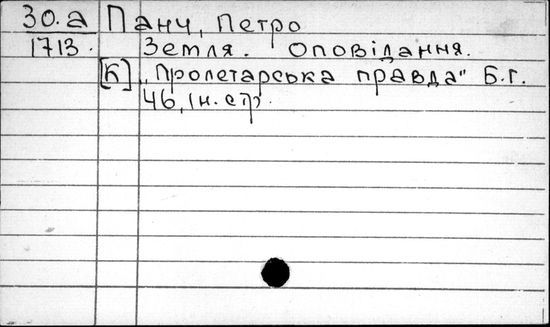 30.а Панч, Петро
1713. Земля. Оповідання.
[К] „Пролетарська правда" Б.г.
46, [н. стр.